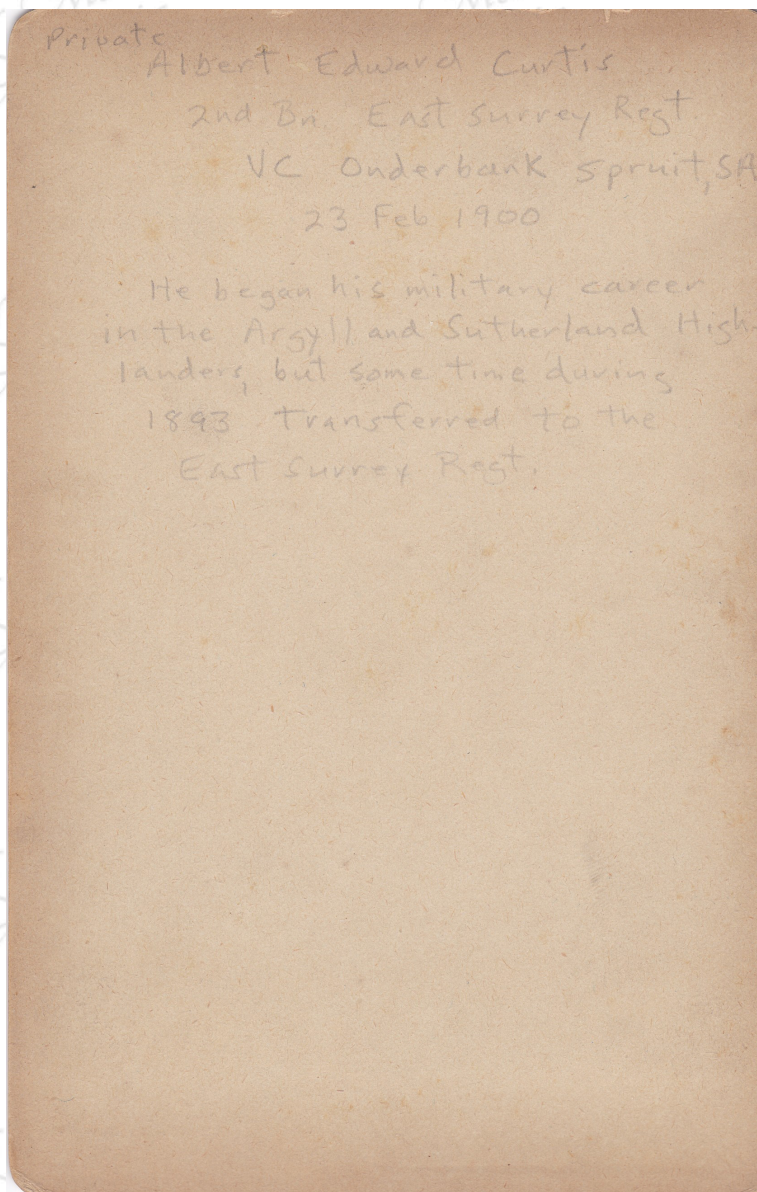 Private
Albert Edward Curtis
2nd Bn. East Surrey Regt.
VC Onderbank Spruit, SA
23 Feb 1900
He began his military career
in the Argyll and Sutherland High-
landers, but some time during
1893 transferred to the
East Surrey Regt.